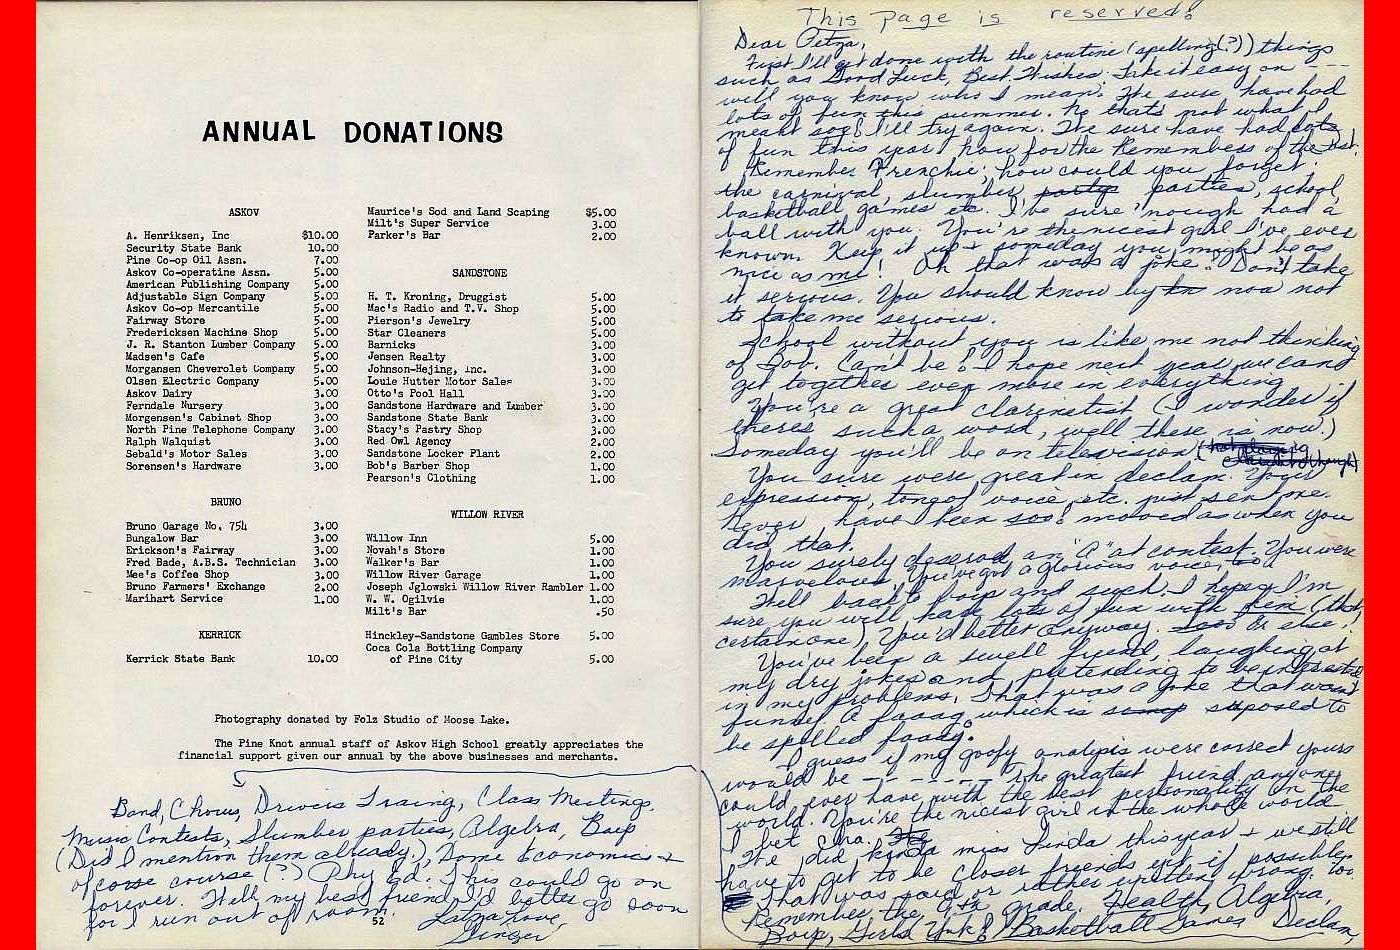 ANNUAL DONATIONS
ASKOV
A. Henriksen, Inc $10.00
Security State Bank 10.00
Pine Co-op Oil Assn. 7.00
Askov Co-operatine Assn. 5.00
American Publishing Company 5.00
Adjustable Sign Company 5.00
Askov Co-op Mercantile 5.00
Fairway Store 5.00
Fredericksen Machine Shop 5.00
J. R. Stanton Lumber Company 5.00
Madsen's Cafe 5.00
Morgansen Cheverolet Company 5.00
Olsen Electric Company 5.00
Askov Dairy 3.00
Ferndale Nursery 3.00
Morgensen's Cabinet Shop 3.00
North Pine Telephone Company 3.00
Ralph Walquist 3.00
Sebald's Motor Sales 3.00
Sorensen's Hardware 3.00
BRUNO
Bruno Garage No. 754 3.00
Bungalow Bar 3.00
Erickson's Fairway 3.00
Fred Bade, A.B.S. Technician 3.00
Mee's Coffee Shop 3.00
Bruno Farmers' Exchange 2.00
Marihart Service 1.00
KERRICK
Kerrick State Bank 10.00
Maurice's Sod and Land Scaping $5.00
Milt's Super Service 3.00
Parker's Bar 2.00
SANDSTONE
H. T. Kroning, Druggist 5.00
Mac's Radio and T.V. Shop 5.00
Pierson's Jewelry 5.00
Star Cleaners 5.00
Barnicks 3.00
Jensen Realty 3.00
Johnson-Hejing, Inc. 3.00
Louie Hutter Motor Sales 3.00
Otto's Pool Hall 3.00
Sandstone Hardware and Lumber 3.00
Sandstone State Bank 3.00
Stacy's Pastry Shop 3.00
Red Owl Agency 2.00
Sandstone Locker Plant 2.00
Bob's Barber Shop 1.00
Pearson's Clothing 1.00
WILLOW RIVER
Willow Inn 5.00
Novah's Store 1.00
Walker's Bar 1.00
Willow River Garage 1.00
Joseph Jglowski Willow River Rambler 1.00
W. W. Ogilvie 1.00
Milt's Bar .50
Hinckley-Sandstone Gambles Store 5.00
Coca Cola Bottling Company
of Pine City 5.00
Photography donated by Folz Studio of Moose Lake.
The Pine Knot annual staff of Askov High School greatly appreciates the
financial support given our annual by the above businesses and merchants.
Band, Chorus, Drivers Traing, Class Meetings,
Music Contests, Slumber parties, Algebra, Boys
(Did I mention them already?), Dome Economics +
of corse course (?) Phy Ed. This could go on
forever. Well my best friend I'd better go soon
for I run out of room.
52
Ginger
This page is reserved!
Dear
First I'll get done with the routine (spelling(?)) things
such as Good Luck, Best Wishes, Take it easy on ---
well you know who I mean. We sure have had
lots of fun this summer. No that's not what I
meant so I'll try again. We sure have had lots
of fun this year now for the Remembers of the Past.
Remember Frenchie, how could you forget,
the carnival, slumber party parties, school,
basketball games etc. I've sure 'nough had a
ball with you. You're the nicest girl I've ever
known. Keep it up + someday you might be as
nice as me! Oh that was a joke. Don't take
it serious. You should know by now not
to take me serious.
School without you is like me not thinking
of Bob. Can't be! I hope next year we can
get together even more in everything.
You're a great clarinetist (I wonder if
theres such a word, well there is now.)
Someday you'll be on television (
You sure were great in declam. Your
expression, tone of voice, etc. just sent me.
Never have been soo! moved as when you
did that.
You surely deserved an "A" at contest. You were
marvelous. You've got a glorious voice, too
Well back to boys and such. I hope, I'm
sure you will have lots of fun with them (that
certain one), You'd better anyway. or else!
You've been a swell friend, laughing at
my dry jokes and pretending to be interested
in my problems. That was a joke that wasn't
funny. A which is suposed to
be spelled
I guess if my goofy analysis were correct yours
would be ------- The greatest friend anyone
could ever have with the best personality in the
world. You're the nicest girl in the whole world
I bet
We did kinda miss Linda this year + we still
have to get to be closer friends yet if possible.
That was said or rather written wrong too.
Remember the 9th grade. Health, Algebra,
Boys, Basketball Games Declam